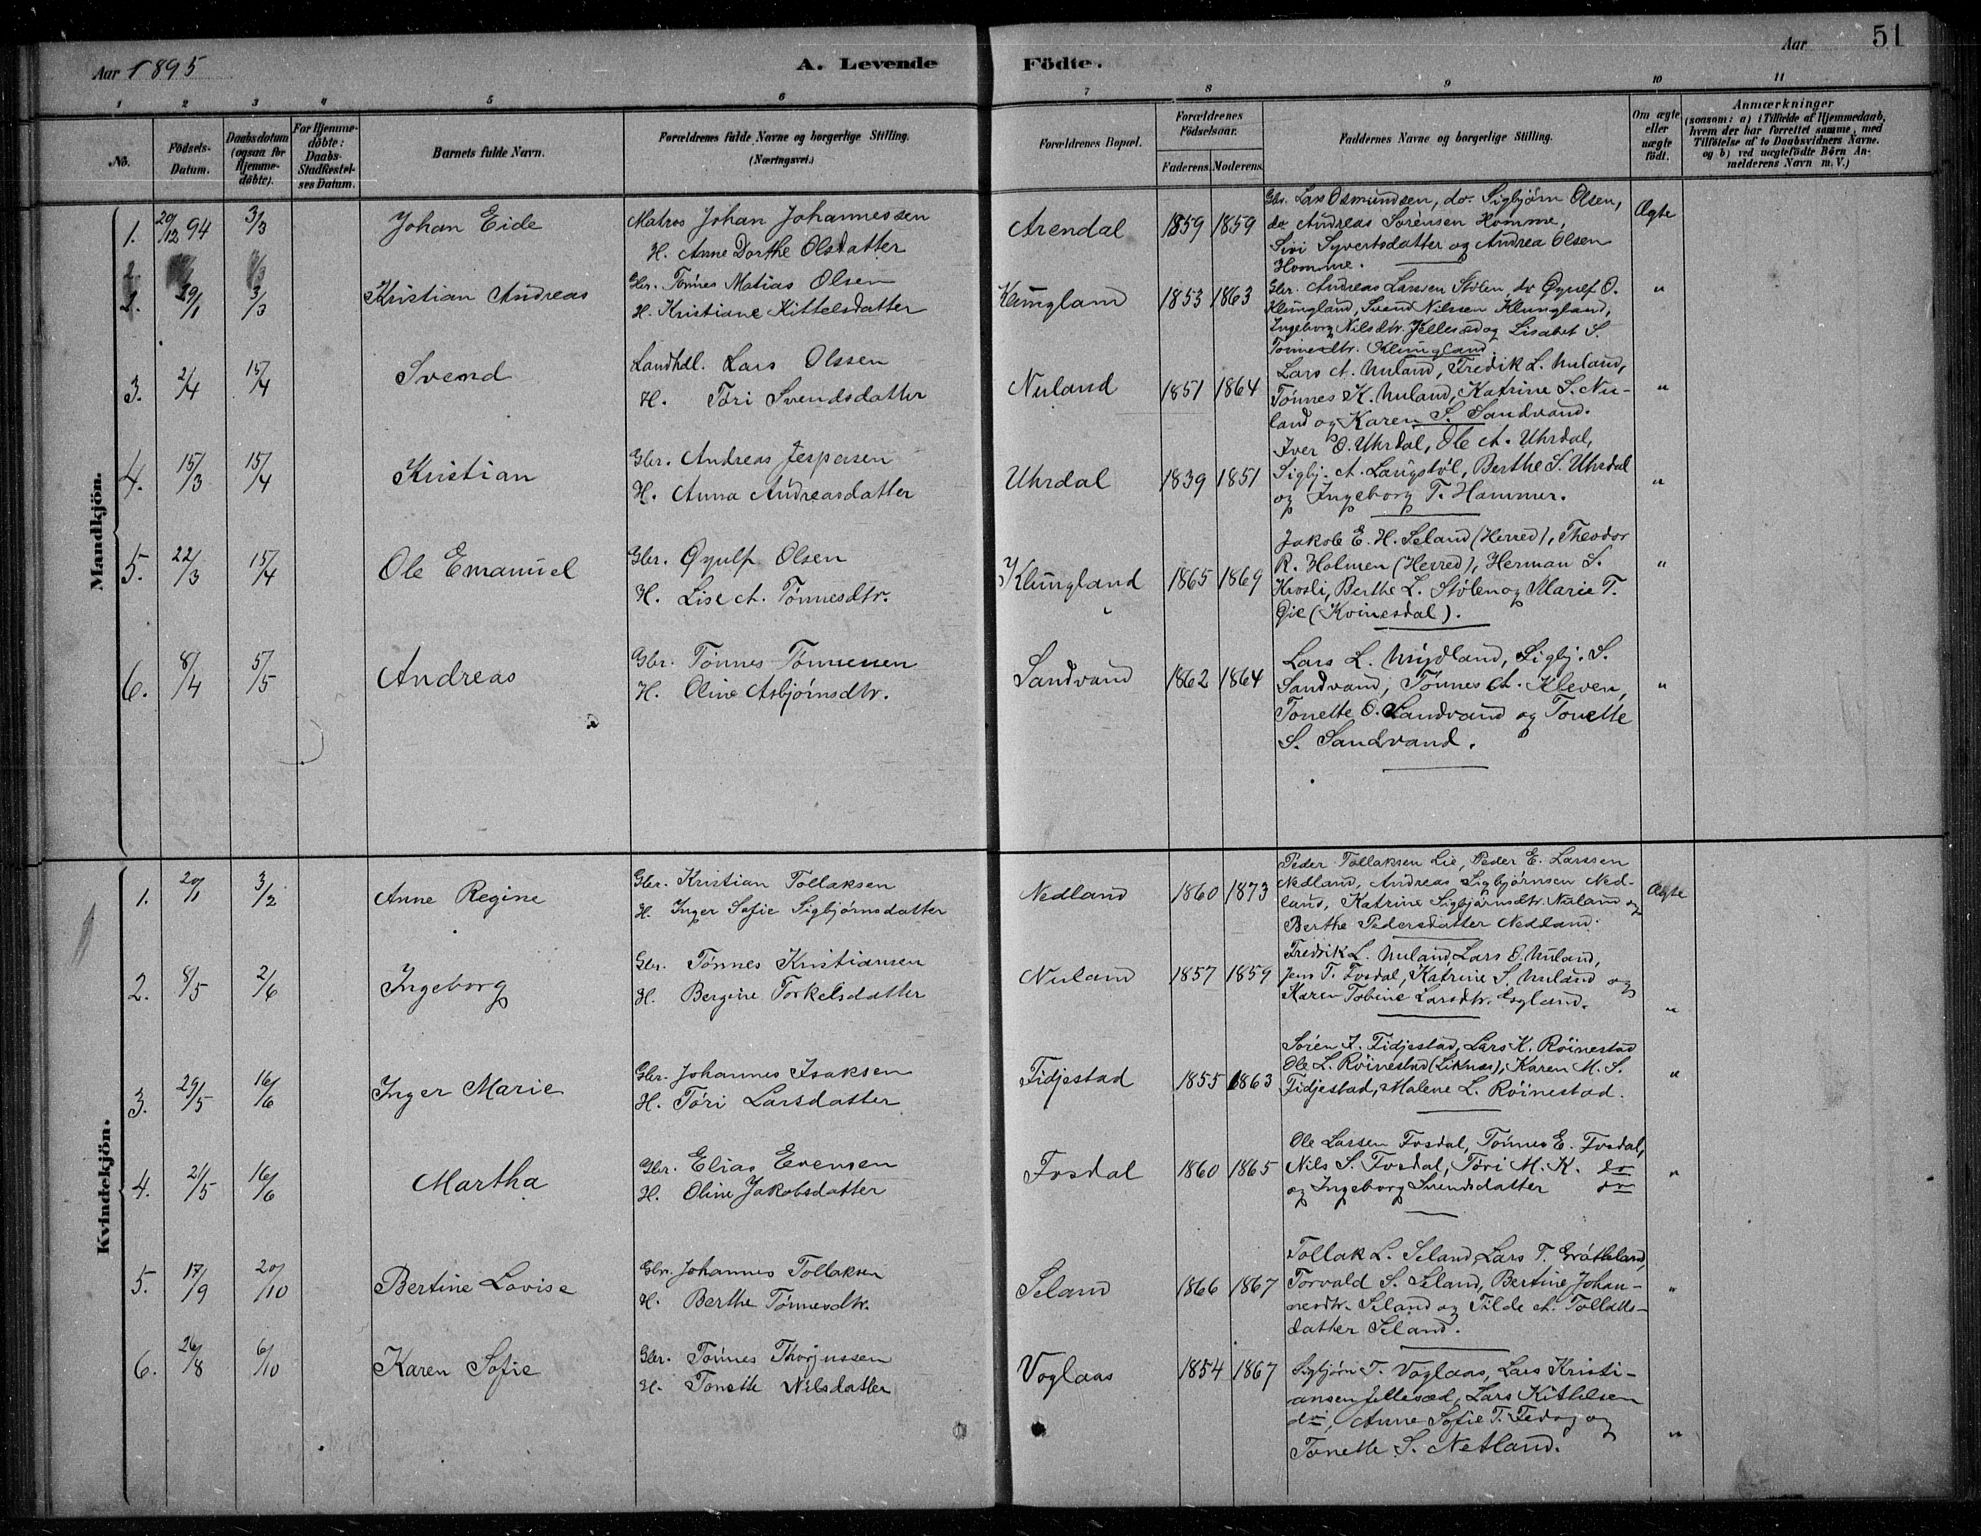 Aar 1895
A. Levende
Födte.
Aar
51
1 2 3 4 5 6 7 8 9 10 11
No.
Födsels-Datum.
Daabsdatum (ogsaa for Hjemme-döbte).
For Hjemme-döbte: Daabs-Stadfestel-ses Datum.
Barnets fulde Navn.
Forældrenes fulde Navne og borgerlige Stilling.
(Næringsvei.)
Forældrenes Bopæl.
Forældrenes Födselsaar.
Faderens. Moderens.
Faddernes Navne og borgerlige Stilling.
Om ægte eller uægte födt.
Anmærkninger
(saasom: a) i Tilfælde af Hjemmedaab, hvem der har forrettet samme, med Tilföielse af to Daabsvidners Navne. og b) ved uægtefödte Börn An-melderens Navn m. V.)
Mandkjön.
1. 20/12 94 3/3 Johan Eide
Matros Johan Johannessen
H. Anne Dorthe Olsdatter
Arendal 1859 1859
Gbr. Lars Osmundsen, do. Sigbjørn Olsen,
do Andreas Sørensen Homme,
Sivi Syvertsdatter og Andrea Olsen
Homme.
Ægte
2. 29/1 3/3 Kristian Andreas
Gbr. Tønnes Matias Olsen
H. Kristiane Kittelsdatter
Klungland 1853 1863
Gbr. Andreas Larsen Stølen, do Øyulf O.
Klungland, Svend Nilssen Klungland,
Ingeborg Nilsdtr. Jellesæd og Lisabet S.
Tønnesdtr. Klungland.
"
3. 2/4 15/4 Svend
Landhdl. Lars Olssen
H. Tøri Svendsdatter
Nuland 1851 1864
Lars A. Nuland, Fredik L. Nuland,
Tønnes K. Nuland, Katrine S. Nu-
land og Karen S. Sandvand.
"
4. 15/3 15/4 Kristian
Gbr. Andreas Jespersen
H. Anna Andreasdatter
Uhrdal 1839 1851
Iver O. Uhrdal, Ole A. Uhrdal,
Sigbj. A. Langstøl, Berthe S. Uhrdal
og Ingeborg T. Hammer.
"
5. 22/3 15/4 Ole Emanuel
Gbr. Øyulf Olsen
H. Lise A. Tønnesdtr.
Klungland 1865 1869
Jakob E. H. Seland (Herred), Theodor
R. Holmen (Herred), Herman S.
Krosli, Berthe L. Stølen og Marie T.
Øie (Kvinesdal).
"
6. 8/4 5/5 Andreas
Gbr. Tønnes Tønnessen
H. Oline Asbjørnsdtr.
Sandvand 1862 1864
Lars L. Mydland, Sigbj. S.
Sandvand, Tønnes A. Kleven,
Tonette O. Sandvand og Tonette
S. Sandvand.
"
Kvindekjön.
1. 20/1 3/2 Anne Regine
Gbr. Kristian Tollaksen
H. Inger Sofie Sigbjørnsdatter
Nedland 1860 1873
Peder Tollaksen Lie, Peder E. Larssen
Nedland, Andreas Sigbjørnsen Ned-
land, Katrine Sigbjørnsdtr. Nuland og
Berthe Pedersdatter Nedland.
Ægte
2. 8/5 2/6 Ingeborg
Gbr. Tønnes Kristiansen
H. Bergine Torkelsdatter
Nuland 1857 1859
Fredrik L. Nuland, Lars O. Nuland,
Jens T. Fosdal, Katrine S. Nuland og
Karen Tobine Larsdtr. Egland.
"
3. 29/5 16/6 Inger Marie
Gbr. Johannes Isaksen
H. Tøri Larsdatter
Fidjestad 1855 1863
Søren J. Fidjestad, Lars K. Røinestad
Ole L. Røinestad (Liknes), Karen M. S.
Fidjestad, Malene L. Røinestad.
"
4. 21/5 16/6 Martha
Gbr. Elias Evensen
H. Oline Jakobsdatter
Fosdal 1860 1865
Ole Larsen Fosdal, Tønnes E. Fosdal,
Nils S. Fosdal, Tøri M. K. do
og Ingeborg Svendsdatter do
"
5. 17/9 20/10 Bertine Lovise
Gbr. Johannes Tollaksen
H. Berthe Tønnesdtr.
Seland 1866 1867
Tollak L. Seland, Lars T. Gråtheland,
Torvald S. Seland, Bertine Johan-
nesdtr. Seland og Tilde A. Tollaks-
datter Seland.
"
6. 26/8 6/10 Karen Sofie
Gbr. Tønnes Thorjussen
H. Tonette Nilsdatter
Voglaas 1854 1867
Sigbjørn T. Voglaas, Lars Kristi-
ansen Jellesæd, Lars Kittelsen
do, Anne Sofie T. Feda og
Tonette S. Netland.
"